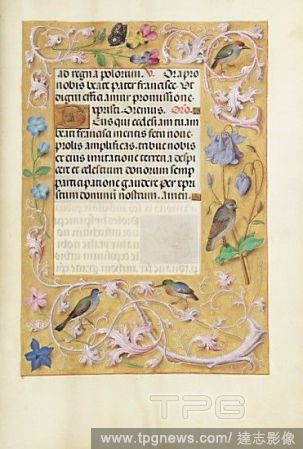 ad regna polorum. V. Ora pro
nobis beate pater francisce. Ut
digni effici amur promissione
xpristi. Oremus. Oro.
Eus qui ecclesiam tuam
beati francisci meritis fetu noue
prolis amplificas. tribue nobis
ex eius imitatione terrena despi
cere et celestium donorum semp
participatione gaudere. per xpri
stum dominum nostrum. amen.
TPG
www.tpgnews.com/達志影像